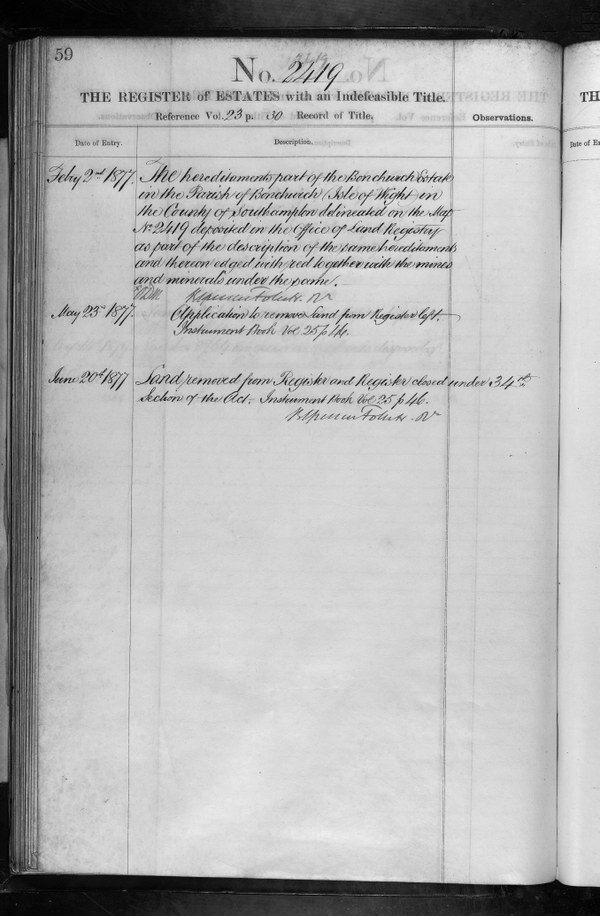 59
No. 2419
THE REGISTER of ESTATES with an Indefeasible Title.
Reference Vol. 23 p. 30 Record of Title.
Observations.
Date of Entry.
Description.
Feby 2nd 1877.
The hereditaments part of the Bonchurch Estate
in the Parish of Bonchurch (Isle of Wight) in
the County of Southampton delineated on the Map
No 2419 deposited in the Office of Land Registry
as part of the description of the same hereditaments
and thereon edged with red together with the mines
and minerals under the same.
May 23rd 1877.
Application to remove Land from Register left.
Instrument Book Vol 25 p 44.
June 20th 1877
Land removed from Register and Register closed under 34th
Section of the Act. Instrument Book Vol 25 p 46.
TH
Date of En